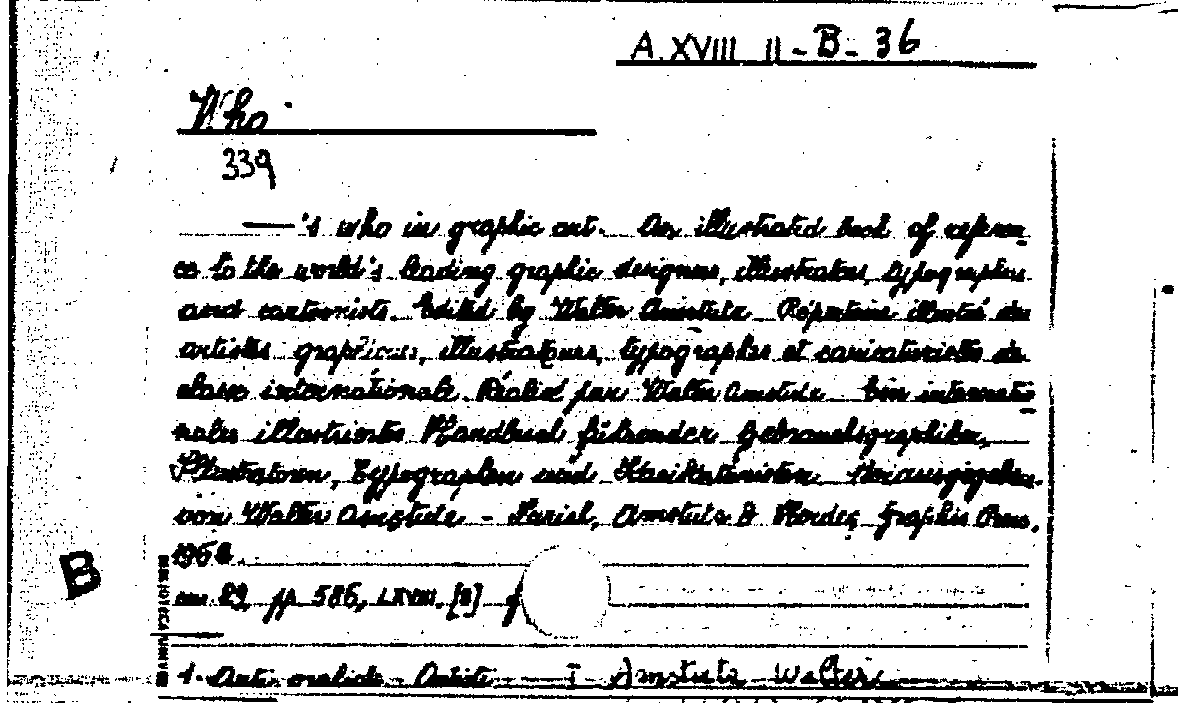 A. XVIII II - B - 36
Who
339
—'s who in graphic art. An illustrated book of referen
ce to the world's leading graphic designers, illustrators, typographers
and cartoonists. Edited by Walter Amstutz Répertoire illustré des
artistes graphiques, illustrateurs, typographes et caricaturistes de
classe internationale. Réalisé par Walter Amstutz Ein internatio
nales illustriertes Handbuch führender Gebrauchsgraphiker,
Illustratoren, Typographen und Karikaturisten Herausgegeben
von Walter Amstutz - Zurich, Amstutz & Herdeg Graphis Press,
1962.
B
cm 29, pp 586, LXVIII, [2]
BIBLIOTECA
1. Arti Artisti — I Amstutz Walter